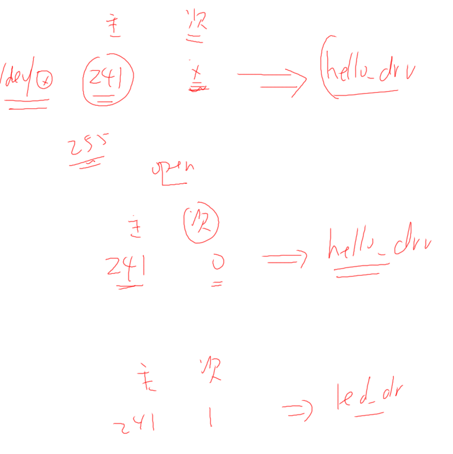 主 次
/dev/x 241 x ⇒ hello_drv
255
open
主 次
241 0 ⇒ hello_drv
主 次
241 1 ⇒ led_dr